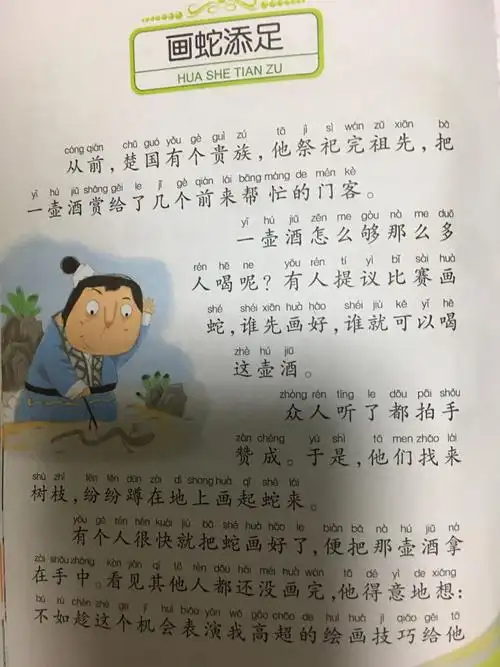 画蛇添足
HUA SHE TIAN ZU
cóng qián chǔ guó yǒu gè guì zú tā jì sì wán zǔ xiān bǎ
从前，楚国有个贵族，他祭祀完祖先，把
yī hú jiǔ shǎng gěi le jǐ gè qián lái bāng máng de mén kè
一壶酒赏给了几个前来帮忙的门客。
yī hú jiǔ zěn me gòu nà me duō
一壶酒怎么够那么多
rén hē ne yǒu rén tí yì bǐ sài huà
人喝呢？有人提议比赛画
shé shéi xiān huà hǎo shéi jiù kě yǐ hē
蛇，谁先画好，谁就可以喝
zhè hú jiǔ
这壶酒。
zhòng rén tīng le dōu pāi shǒu
众人听了都拍手
zàn chéng yú shì tā men zhǎo lái
赞成。于是，他们找来
shù zhī fēn fēn dūn zài dì shang huà qǐ shé lái
树枝，纷纷蹲在地上画起蛇来。
yǒu gè rén hěn kuài jiù bǎ shé huà hǎo le biàn bǎ nà hú jiǔ ná
有个人很快就把蛇画好了，便把那壶酒拿
zài shǒu zhōng kàn jiàn qí tā rén dōu hái méi huà wán tā dé yì de xiǎng
在手中。看见其他人都还没画完，他得意地想：
bù rú chèn zhè gè jī huì biǎo yǎn wǒ gāo chāo de huì huà jì qiǎo gěi tā
不如趁这个机会表演我高超的绘画技巧给他